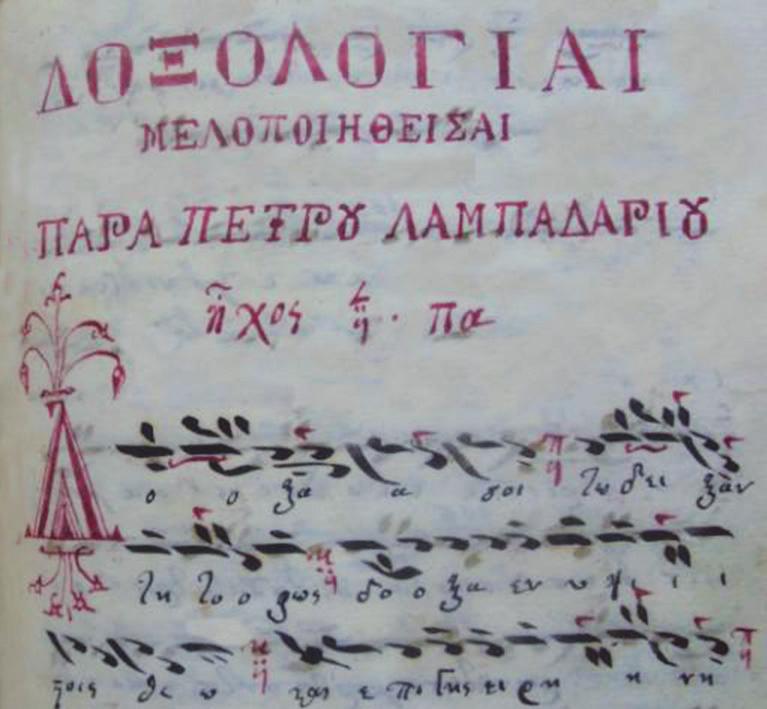 ΔΟΞΟΛΟΓΙΑΙ
ΜΕΛΟΠΟΙΗΘΕΙΣΑΙ
ΠΑΡΑ ΠΕΤΡȢ ΛΑΜΠΑΔΑΡΙȢ
ἦχος πα
Δ ο ο ξα α σοι τω δει ξαν
τι το ο φως δο ο ξα εν υ ψι ι ι
ςοις θε ω και ε πι γης ει ρη η νη